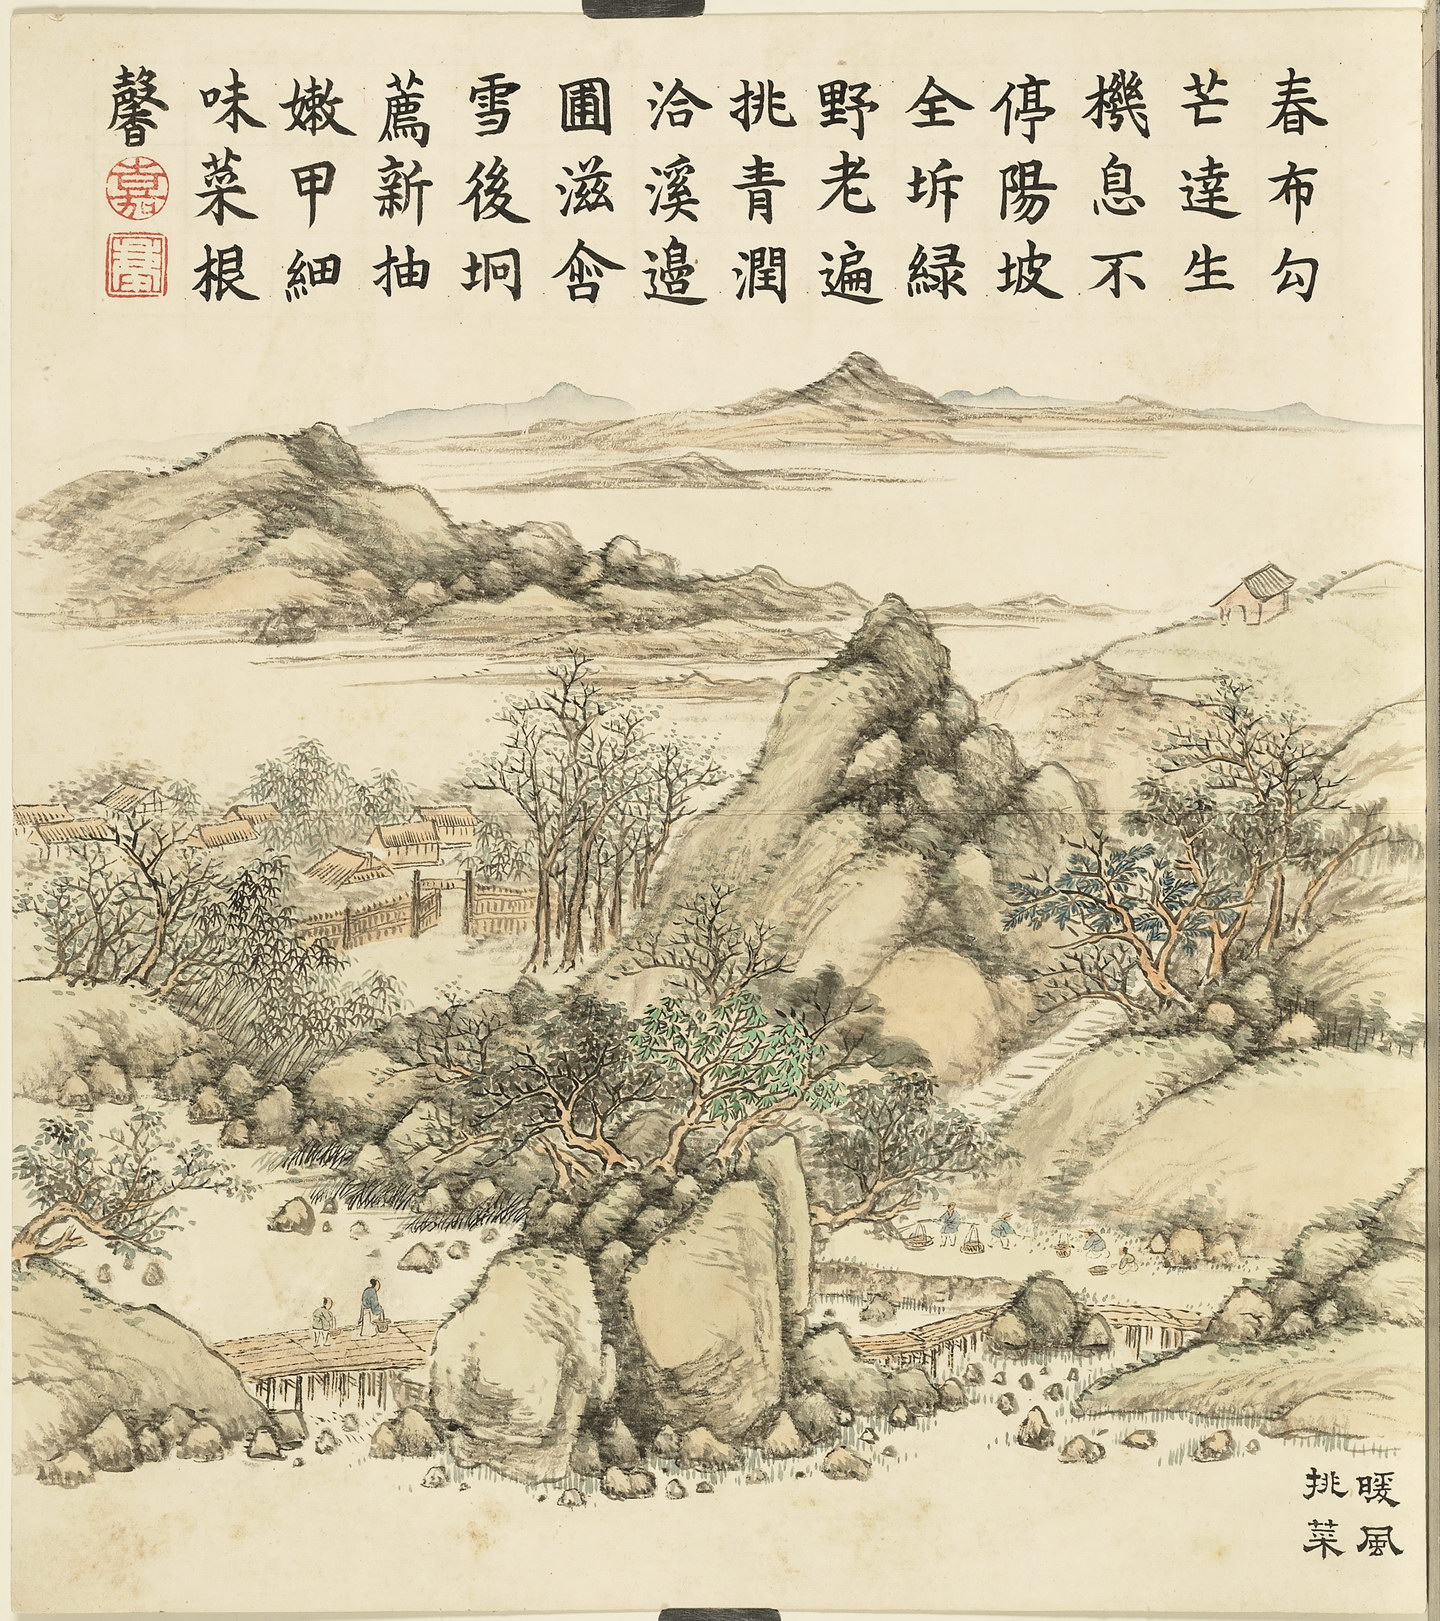 春布勾
芒達生
機息不
停陽坡
全坼綠
野老遍
挑青潤
洽溪邉
圃滋含
雪後坰
薦新抽
嫩甲細
味菜根
馨
嘉
暖風
挑菜